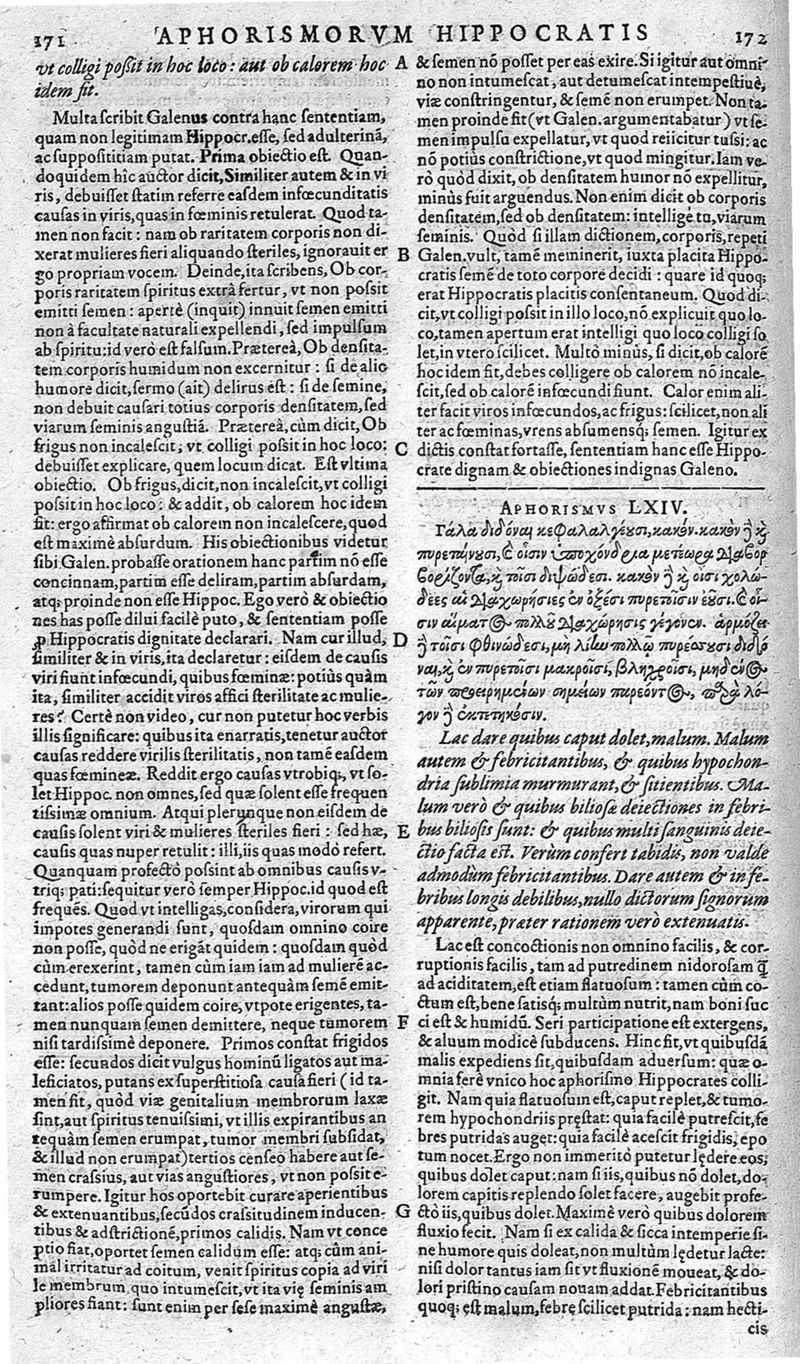 171 APHORISMORVM HIPPOCRATIS 172
vt colligi poſsit in hoc loco: aut ob calorem hoc
idem fit.
Multa ſcribit Galenus contra hanc ſententiam,
quam non legitimam Hippocr. eſſe, ſed adulterinã,
ac ſuppoſititiam putat. Prima obiectio eſt. Quan-
doquidem hîc auctor dicit, Similiter autem & in vi
ris, debuiſſet ſtatim referre eaſdem infœcunditatis
cauſas in viris, quas in fœminis retulerat. Quod ta-
men non facit: nam ob raritatem corporis non di-
xerat mulieres fieri aliquando ſteriles, ignorauit er
go propriam vocem. Deinde, ita ſcribens, Ob cor-
poris raritatem ſpiritus extrà fertur, vt non poſsit
emitti ſemen: apertè (inquit) innuit ſemen emitti
non à facultate naturali expellendi, ſed impulſum
ab ſpiritu: id verò eſt falſum. Prætereà, Ob denſita-
tem corporis humidum non excernitur: ſi de alio
humore dicit, ſermo (ait) delirus eſt: ſi de ſemine,
non debuit cauſari totius corporis denſitatem, ſed
viarum ſeminis anguſtiã. Prætereà, cùm dicit, Ob
frigus non incaleſcit, vt colligi poſsit in hoc loco:
debuiſſet explicare, quem locum dicat. Eſt vltima
obiectio. Ob frigus, dicit, non incaleſcit, vt colligi
poſsit in hoc loco: & addit, ob calorem hoc idem
fit: ergo affirmat ob calorem non incaleſcere, quod
eſt maximè abſurdum. His obiectionibus videtur
ſibi Galen. probaſſe orationem hanc partim nõ eſſe
concinnam, partim eſſe deliram, partim abſurdam,
atq; proinde non eſſe Hippoc. Ego verò & obiectio
nes has poſſe dilui facilè puto, & ſententiam poſſe
ꝓ Hippocratis dignitate declarari. Nam cur illud,
ſimiliter & in viris, ita declaretur: eiſdem de cauſis
viri fiunt infœcundi, quibus fœminæ: potiùs quàm
ita, ſimiliter accidit viros affici ſterilitate ac mulie-
res? Certè non video, cur non putetur hoc verbis
illis ſignificare: quibus ita enarratis, tenetur auctor
cauſas reddere virilis ſterilitatis, non tamẽ eaſdem
quas fœmineæ. Reddit ergo cauſas vtrobiq;, vt ſo-
let Hippoc. non omnes, ſed quæ ſolent eſſe frequen
tiſsimæ omnium. Atqui plerunque non eiſdem de
cauſis ſolent viri & mulieres ſteriles fieri: ſed hæ,
cauſis quas nuper retulit: illi, iis quas modò refert.
Quanquam profectò poſsint ab omnibus cauſis v-
triq; pati: ſequitur verò ſemper Hippoc. id quod eſt
frequẽs. Quod vt intelligas, conſidera, virorum qui
impotes generandi ſunt, quoſdam omnino coire
non poſſe, quòd ne erigãt quidem: quoſdam quòd
cùm erexerint, tamen cùm iam iam ad mulierẽ ac-
cedunt, tumorem deponunt antequàm ſemẽ emit-
tant: alios poſſe quidem coire, vtpote erigentes, ta-
men nunquam ſemen demittere, neque tumorem
niſi tardiſsimè deponere. Primos conſtat frigidos
eſſe: ſecundos dicit vulgus hominũ ligatos aut ma-
leficiatos, putans ex ſuperſtitioſa cauſa fieri (id ta-
men fit, quòd viæ genitalium membrorum laxæ
ſint, aut ſpiritus tenuiſsimi, vt illis expirantibus an
tequàm ſemen erumpat, tumor membri ſubſidat,
& illud non erumpat) tertios cenſeo habere aut ſe-
men craſsius, aut vias anguſtiores, vt non poſsit e-
rumpere. Igitur hos oportebit curare aperientibus
& extenuantibus, ſecũdos craſsitudinem inducen-
tibus & adſtrictionẽ, primos calidis. Nam vt conce
ptio fiat, oportet ſemen calidum eſſe: atq; cùm ani-
mal irritatur ad coitum, venit ſpiritus copia ad viri
le membrum, quo intumeſcit, vt ita vię ſeminis am
pliores fiant: ſunt enim per ſeſe maximè anguſtæ,
A & ſemen nõ poſſet per eas exire. Si igitur aut omni
no non intumeſcat, aut detumeſcat intempeſtiuè,
viæ conſtringentur, & ſemẽ non erumpet. Non ta-
men proinde fit (vt Galen. argumentabatur) vt ſe-
men impulſu expellatur, vt quod reiicitur tuſsi: ac
nõ potiùs conſtrictione, vt quod mingitur. Iam ve-
rò quòd dixit, ob denſitatem humor nõ expellitur,
minùs fuit arguendus. Non enim dicit ob corporis
denſitatem, ſed ob denſitatem: intellige tu, viarum
ſeminis. Quòd ſi illam dictionem, corporis, repeti
B Galen. vult, tamẽ meminerit, iuxta placita Hippo-
cratis ſemẽ de toto corpore decidi: quare id quoq;
erat Hippocratis placitis conſentaneum. Quod di-
cit, vt colligi poſsit in illo loco, nõ explicuit quo lo-
co, tamen apertum erat intelligi quo locõ colligi ſo
let, in vtero ſcilicet. Multò minùs, ſi dicit, ob calorẽ
hoc idem fit, debes colligere ob calorem nõ incale-
ſcit, ſed ob calorẽ infœcundi fiunt. Calor enim ali-
ter facit viros infœcundos, ac frigus: ſcilicet, non ali
ter ac fœminas, vrens abſumensq; ſemen. Igitur ex
C dictis conſtat fortaſſe, ſententiam hanc eſſe Hippo-
crate dignam & obiectiones indignas Galeno.
APHORISMVS LXIV.
Γάλα διδόναι κεφαλαλγέουσι, κακόν. κακὸν ἢ κ̀
πυρεταίνουσι, & οἷσιν ὑποχόνδρια μετέωρα διαβορ
βορίζοντα, κ̀ τοῖσι διψώδεσι. κακὸν ἢ κ̀ οἷσι χολώ-
δεες αἱ διαχωρήσιες ἐν ὀξέσι πυρετοῖσιν ἐοῦσι. & οἷ-
σιν αἵματος πολλοῦ διαχώρησις γέγονεν. ἁρμόζει
D ἢ τοῖσι φθινώδεσι, μὴ λίην πολλῷ πυρέσσουσι διδό-
ναι, κ̀ ἐν πυρετοῖσι μακροῖσι, βληχροῖσι, μηδενὸς
τῶν προειρημένων σημείων παρεόντος, παρὰ λό-
γον ἢ ἐκτετηκόσιν.
Lac dare quibus caput dolet, malum. Malum
autem & febricitantibus, & quibus hypochon-
dria ſublimia murmurant, & ſitientibus. Ma-
lum verò & quibus bilioſæ deiectiones in febri-
E bus bilioſis ſunt: & quibus multi ſanguinis deie-
ctio facta eſt. Verùm confert tabidis, non valde
admodùm febricitantibus. Dare autem & in fe-
bribus longis debilibus, nullo dictorum ſignorum
apparente, præter rationem verò extenuatis.
Lac eſt concoctionis non omnino facilis, & cor-
ruptionis facilis, tam ad putredinem nidoroſam q̃
ad aciditatem, eſt etiam flatuoſum: tamen cùm co-
ctum eſt, bene ſatisq; multùm nutrit, nam boni ſuc
F ci eſt & humidũ. Seri participatione eſt extergens,
& aluum modicè ſubducens. Hinc fit, vt quibuſdã
malis expediens ſit, quibuſdam aduerſum: quæ o-
mnia ferè vnico hoc aphoriſmo Hippocrates colli-
git. Nam quia flatuoſum eſt, caput replet, & tumo-
rem hypochondriis pręſtat: quia facilè putreſcit, fe
bres putridas auget: quia facilè aceſcit frigidis, epo
tum nocet. Ergo non immeritò putetur lędere eos,
quibus dolet caput: nam ſi iis, quibus nõ dolet, do-
lorem capitis replendo ſolet facere, augebit profe-
G ctò iis, quibus dolet. Maximè verò quibus dolorem
fluxio fecit. Nam ſi ex calida & ſicca intemperie ſi-
ne humore quis doleat, non multùm lędetur lacte:
niſi dolor tantus iam ſit vt fluxionẽ moueat, & do-
lori priſtino cauſam nouam addat. Febricitantibus
quoq; eſt malum, febrę ſcilicet putrida: nam hecti-
cis